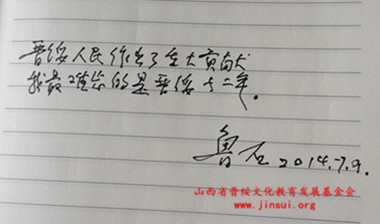 晋绥人民作出了重大贡献
我最难忘的是晋绥十二年。
鲁石 2014.7.9.
山西省晋绥文化教育发展基金会
www.jinsui.org